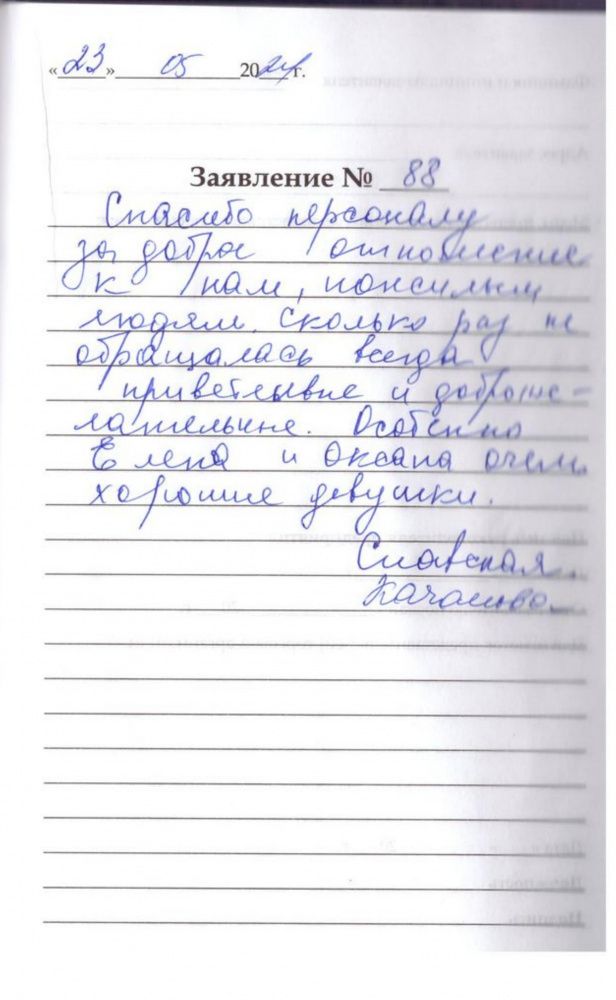 «23» 05 2024г.
Заявление № 88
Спасибо персоналу
за доброе отношение
к нам, пожилым
людям. Сколько раз не
обращалась всегда
приветливые и доброже-
лательные. Особенно
Елена и Оксана очень
хорошие девушки.
Славская.